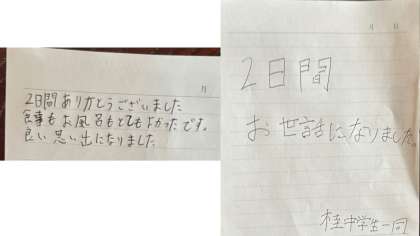 月
2日間ありがとうございました
食事もお風呂もとてもよかったです。
良い思い出になりました。
月 日
2日間
お世話になりました。
桂中学生一同